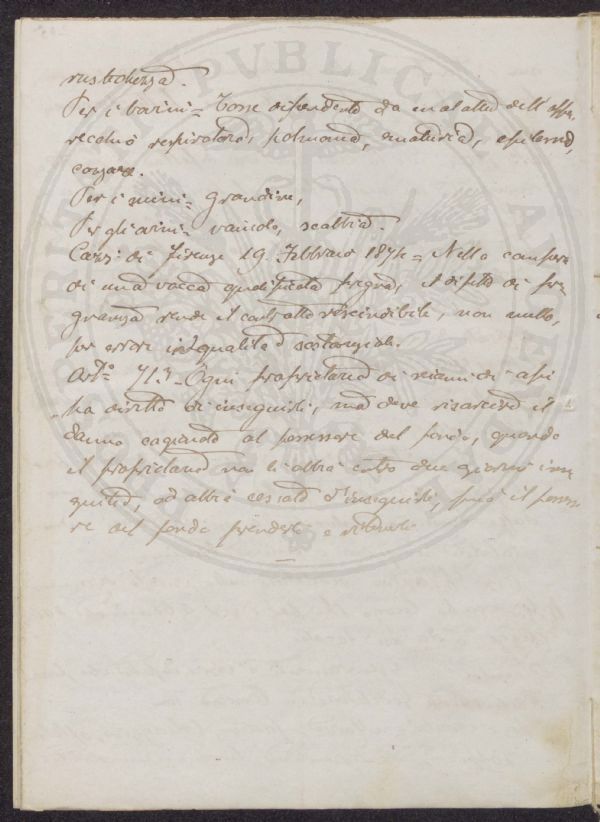 rustichezza.
Per i bovini = Tosse dipendente da malattia dell'appa-
recchio respiratorio, polmonia, ematuria, epilessia,
Per i suini = Grandine,
Per gli ovini = vaiuolo, scabbia.
Cass: di Firenze 19 Febbraio 1874 = Nella compera
di una vacca qualificata pregna, il difetto di pre-
gnanza rende il contratto rescindibile, non nullo,
per errore in qualità sostanziale.
Artº 713 = Ogni proprietario di sciami di api
ha diritto di inseguirli, ma deve risarcire il
danno cagionato al possessore del fondo, quando
il proprietario non li abbia entro due giorni inse-
guiti, od abbia cessato d'inseguirli, può il possesso-
re del fondo prenderli e ritenerli